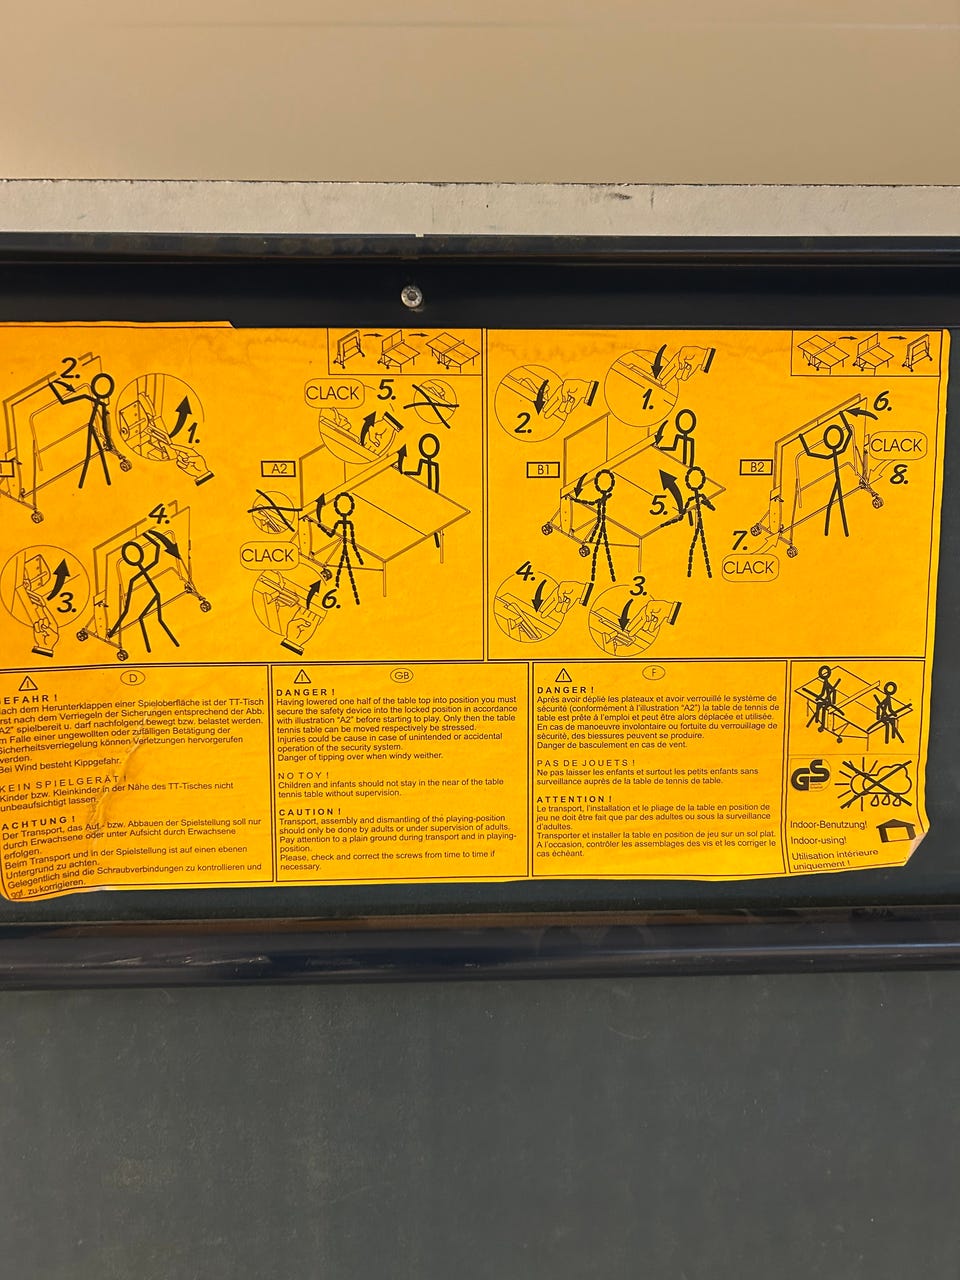 2.
1.
4.
3.
CLACK
5.
A2
CLACK
6.
2.
1.
B1
5.
4.
3.
6.
B2
CLACK
8.
7.
CLACK
D
EFAHR!
ach dem Herunterklappen einer Spieloberfläche ist der TT-Tisch
rst nach dem Verriegeln der Sicherungen entsprechend der Abb.
"A2" spielbereit u. darf nachfolgend bewegt bzw. belastet werden.
m Falle einer ungewollten oder zufälligen Betätigung der
Sicherheitsverriegelung können Verletzungen hervorgerufen
werden.
Bei Wind besteht Kippgefahr.
KEIN SPIELGERÄT!
Kinder bzw. Kleinkinder in der Nähe des TT-Tisches nicht
unbeaufsichtigt lassen.
ACHTUNG!
Der Transport, das Auf- bzw. Abbauen der Spielstellung soll nur
durch Erwachsene oder unter Aufsicht durch Erwachsene
erfolgen.
Beim Transport und in der Spielstellung ist auf einen ebenen
Untergrund zu achten.
Gelegentlich sind die Schraubverbindungen zu kontrollieren und
ggf. zu korrigieren.
GB
DANGER!
Having lowered one half of the table top into position you must
secure the safety device into the locked position in accordance
with illustration "A2" before starting to play. Only then the table
tennis table can be moved respectively be stressed.
Injuries could be cause in case of unintended or accidental
operation of the security system.
Danger of tipping over when windy weither.
NO TOY!
Children and infants should not stay in the near of the table
tennis table without supervision.
CAUTION!
Transport, assembly and dismantling of the playing-position
should only be done by adults or under supervision of adults.
Pay attention to a plain ground during transport and in playing-
position.
Please, check and correct the screws from time to time if
necessary.
F
DANGER!
Après avoir déplié les plateaux et avoir verrouillé le système de
sécurité (conformément à l'illustration "A2") la table de tennis de
table est prête à l'emploi et peut être alors déplacée et utilisée.
En cas de manoeuvre involontaire ou fortuite du verrouillage de
sécurité, des biessures peuvent se produire.
Danger de basculement en cas de vent.
PAS DE JOUETS!
Ne pas laisser les enfants et surtout les petits enfants sans
surveillance auprès de la table de tennis de table.
ATTENTION!
Le transport, l'installation et le pliage de la table en position de
jeu ne doit être fait que par des adultes ou sous la surveillance
d'adultes.
Transporter et installer la table en position de jeu sur un sol plat.
A l'occasion, contrôler les assemblages des vis et les corriger le
cas échéant.
GS
Indoor-Benutzung!
Indoor-using!
Utilisation intérieure
uniquement !